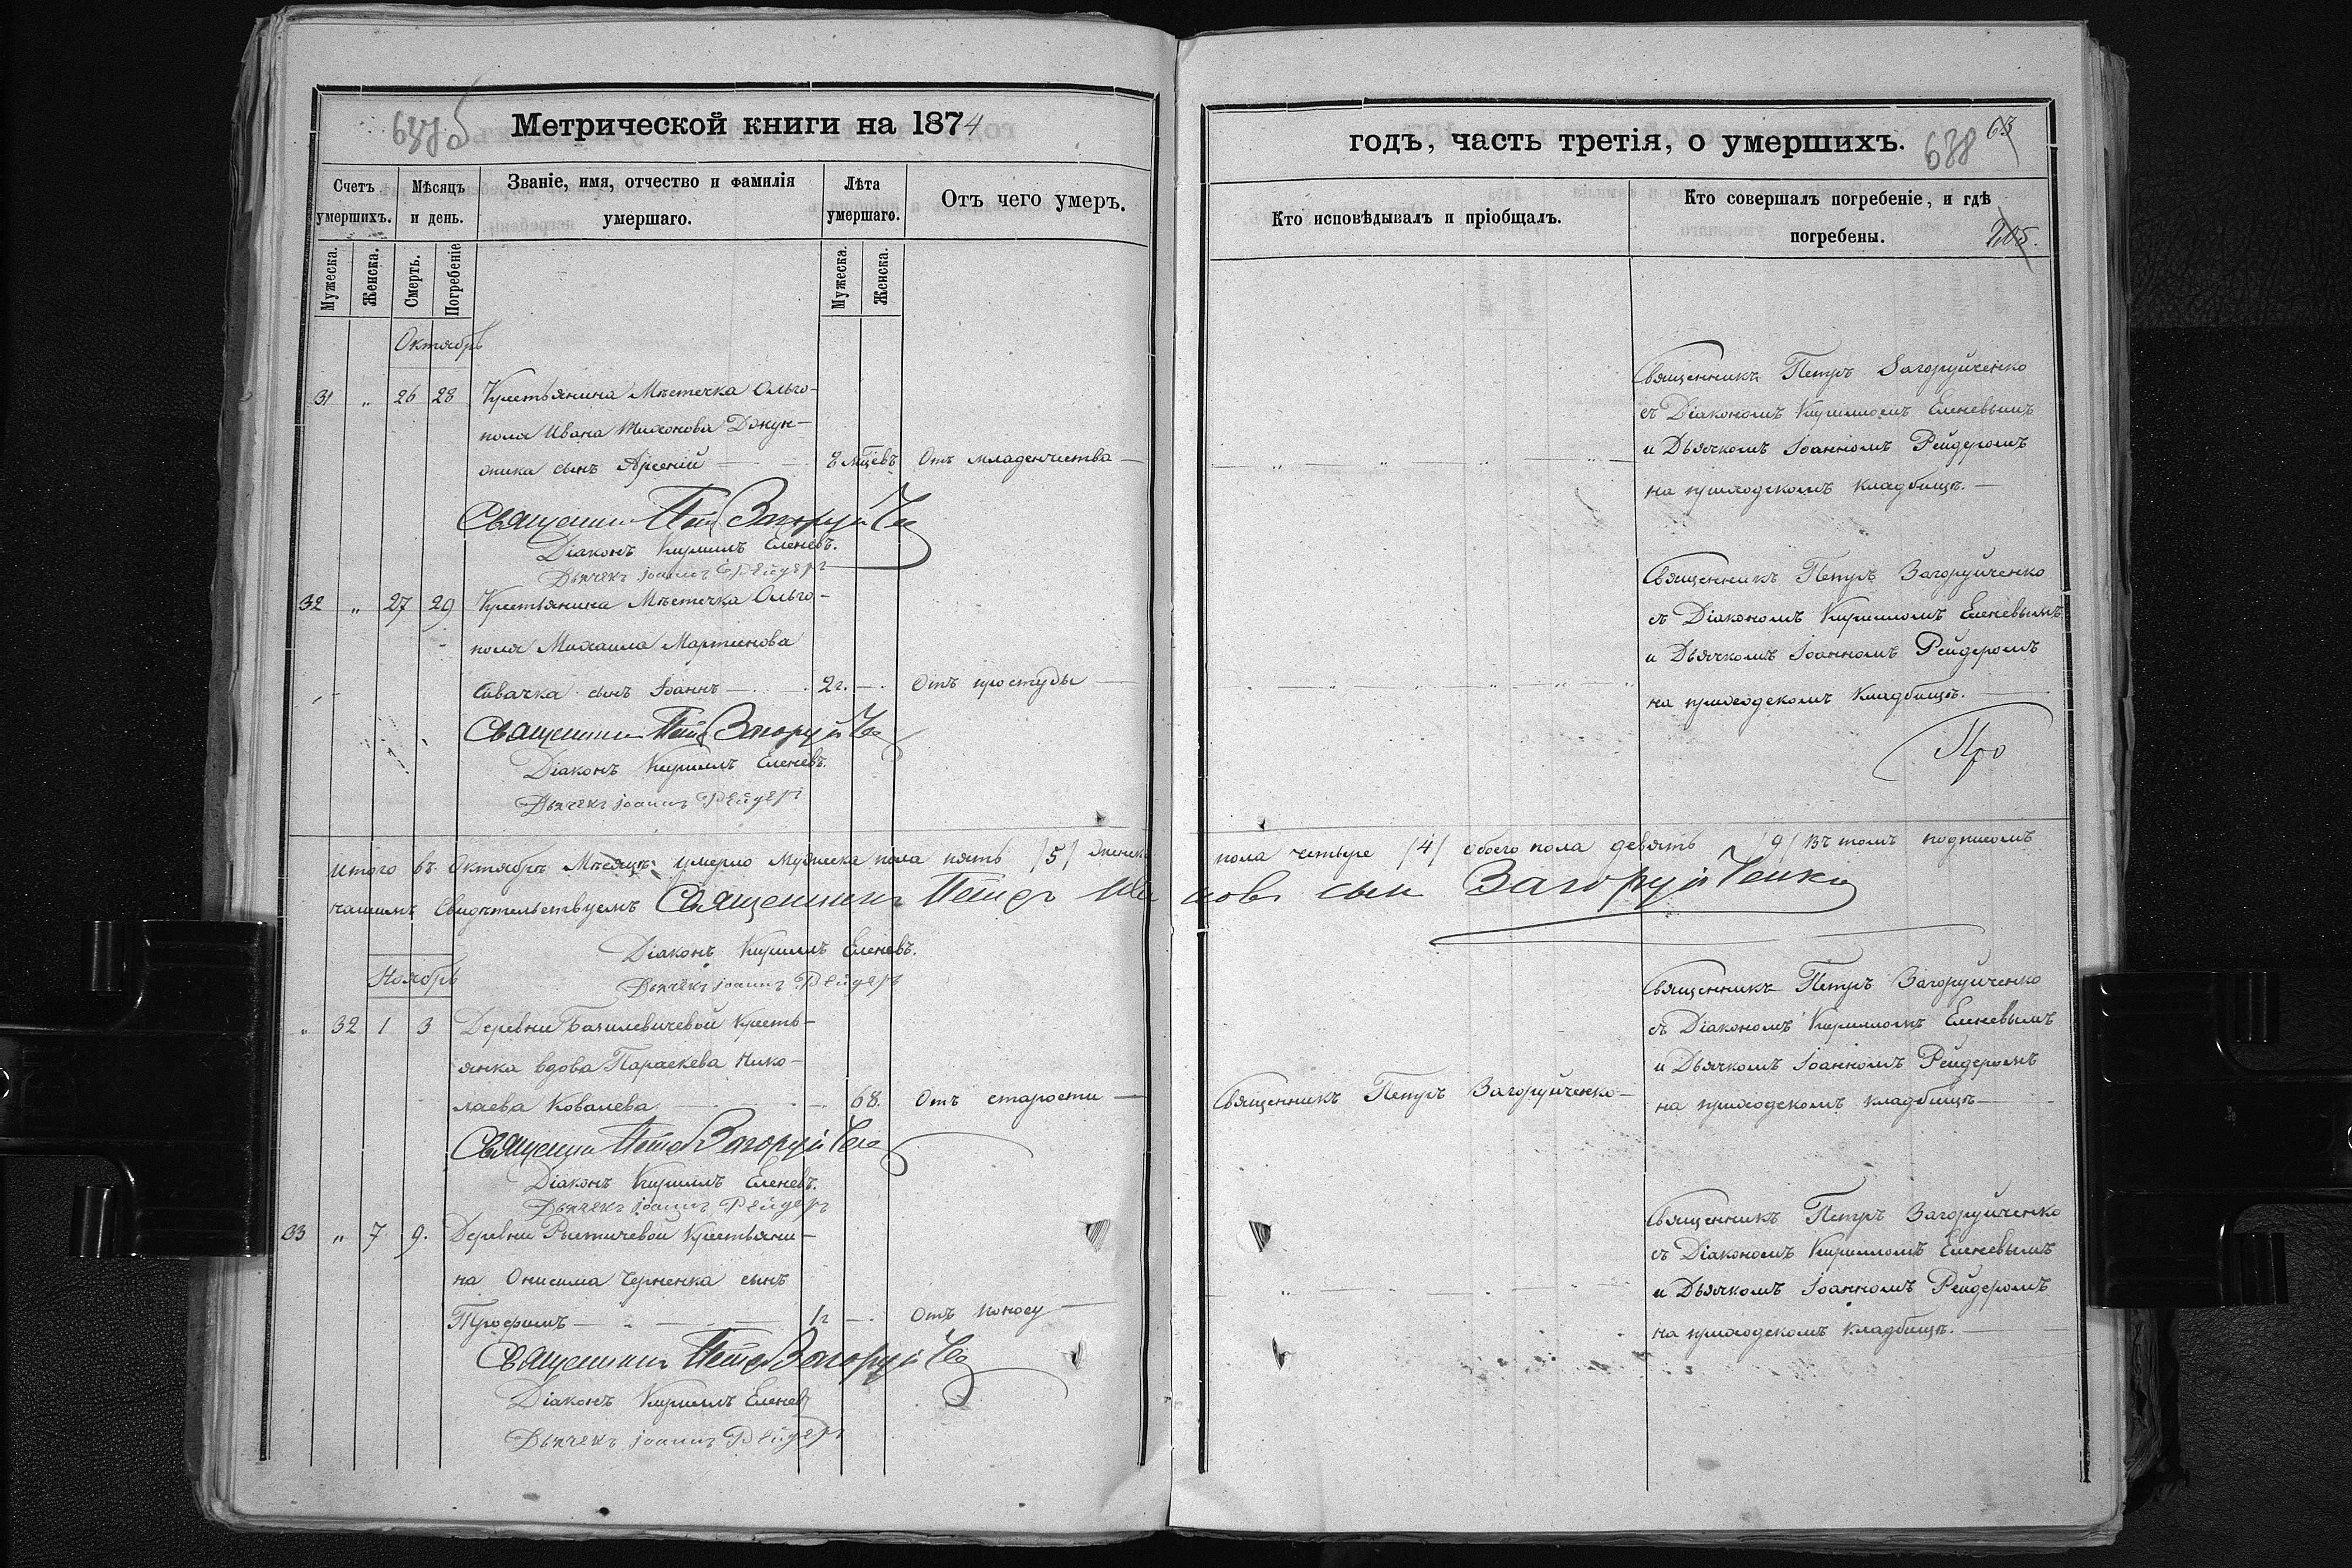 637 б
Метрической книги на 1874
Счетъ умершихъ.
Мѣсяцъ и день.
Званіе, имя, отчество и фамилія умершаго.
Лѣта умершаго.
Отъ чего умеръ.
Мужеска.
Женска.
Смерть.
Погребеніе
Мужеска.
Женска.
Октябрь
31 „ 26 28 Крестьянина Мѣстечка Ольго-
поля Ивана Тихонова
сынъ Арсеній — 8 мцевъ Отъ младенчества —
Священникъ Петръ Загоруйченко
Діаконъ Кириллъ Еленевъ.
Дьячекъ Іоаннъ Рейдеръ
32 „ 27 29 Крестьянина Мѣстечка Ольго-
поля Михаила Мартинова
Сивачка сынъ Іоаннъ — 2 г. — Отъ простуды —
Священникъ Петръ Загоруйченко
Діаконъ Кириллъ Еленевъ.
Дьячекъ Іоаннъ Рейдеръ
Итого въ Октябрѣ Мѣсяцѣ умерло мужеска пола пять /5/ женска
чаимъ Свидѣтельствуемъ Священникъ Петръ
Діаконъ Кириллъ Еленевъ.
Дьячекъ Іоаннъ Рейдеръ
Ноябрь
„ 32 1 3 Деревни Базилевичевой Кресть-
янка вдова Параскева Нико-
лаева Ковалева — 68. Отъ старости —
Священникъ Петръ Загоруйченко
Діаконъ Кириллъ Еленевъ.
Дьячекъ Іоаннъ Рейдеръ
33 „ 7 9. Деревни Крестьяни-
на Онисима Черненка сынъ
Трофимъ — 1 г — Отъ поносу —
Священникъ Петръ Загоруйченко
Діаконъ Кириллъ Еленевъ
Дьячекъ Іоаннъ Рейдеръ
годъ, часть третія, о умершихъ.
638 63
Кто исповѣдывалъ и пріобщалъ.
Кто совершалъ погребеніе, и гдѣ погребены.
205.
Священникъ Петръ Загоруйченко
съ Діакономъ Кирилломъ Еленевымъ
и Дьячкомъ Іоанномъ Рейдеромъ
на приходскомъ кладбищѣ. —
Священникъ Петръ Загоруйченко
съ Діакономъ Кирилломъ Еленевымъ
и Дьячкомъ Іоанномъ Рейдеромъ
на приходскомъ кладбищѣ. —
Про
пола четыре /4/ обоего пола девять /9/ Въ томъ подписомъ
новъ сын Загоруйченко
Священникъ Петръ Загоруйченко
съ Діакономъ Кирилломъ Еленевымъ
и Дьячкомъ Іоанномъ Рейдеромъ
Священникъ Петръ Загоруйченко — на приходскомъ кладбищѣ —
Священникъ Петръ Загоруйченко
съ Діакономъ Кирилломъ Еленевымъ
и Дьячкомъ Іоанномъ Рейдеромъ
на приходскомъ кладбищѣ. —